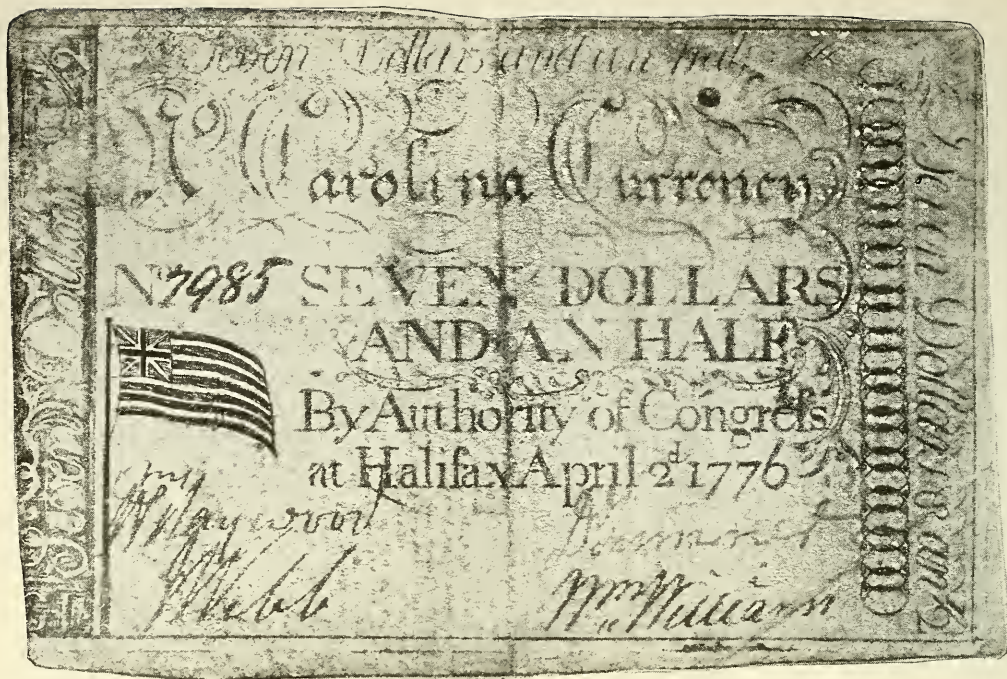 Seven Dollars and an half
N Carolina Currency.
No 7985 SEVEN DOLLARS
AND AN HALF
By Authority of Congreſs
at Halifax April 2d 1776
Wm Haywood
J Webb
Wm Williams
Seven Dollars & an ½